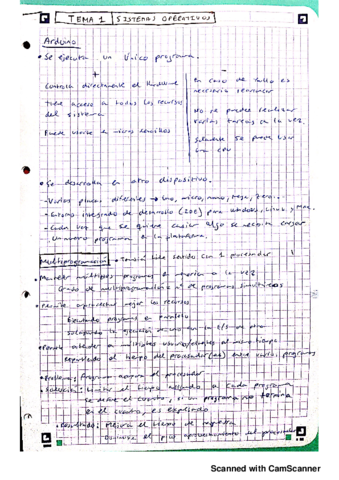 TEMA 1 SISTEMAS OPERATIVOS
Arduino
• Se ejecuta un único programa.
+ -
Controla directamente el Hardware
En caso de fallo es necesario reiniciar
Tiene acceso a todos los recursos del sistema
No se pueden realizar varias tareas a la vez.
Puede usarse en
Solamente se puede usar una CPU
• Se desarrolla en otro dispositivo.
- Varias placas diferentes → Uno, micro, nano, mega, zero..
- Entorno integrado de desarrollo (IDE) para windows, Linux y Mac.
- Cada vez que se quiere cambiar algo se necesita cargar
un nuevo programa en la plataforma.
Multiprogramación → Tendría sentido con 1 procesador
• Mantener múltiples programas en memoria a la vez
Grado de multiprogramación = nº de programas simultáneos
• Permite aprovechar mejor los recursos
Ejecutando programas en paralelo
Solapando la ejecución de uno con la E/S de otro
• Permite atender a múltiples usuarios/empleos al mismo tiempo
Repartiendo el tiempo del procesador(es) entre varios programas
• Problema: Programa acapara el procesador
• Solución: Limitar el tiempo asignado a cada programa
Se define el cuanto, si un programa no termina
en el cuanto, es expulsado
• Resultado: Mejora el tiempo de respuesta
Disminuye el aprovechamiento del procesador
Scanned with CamScanner